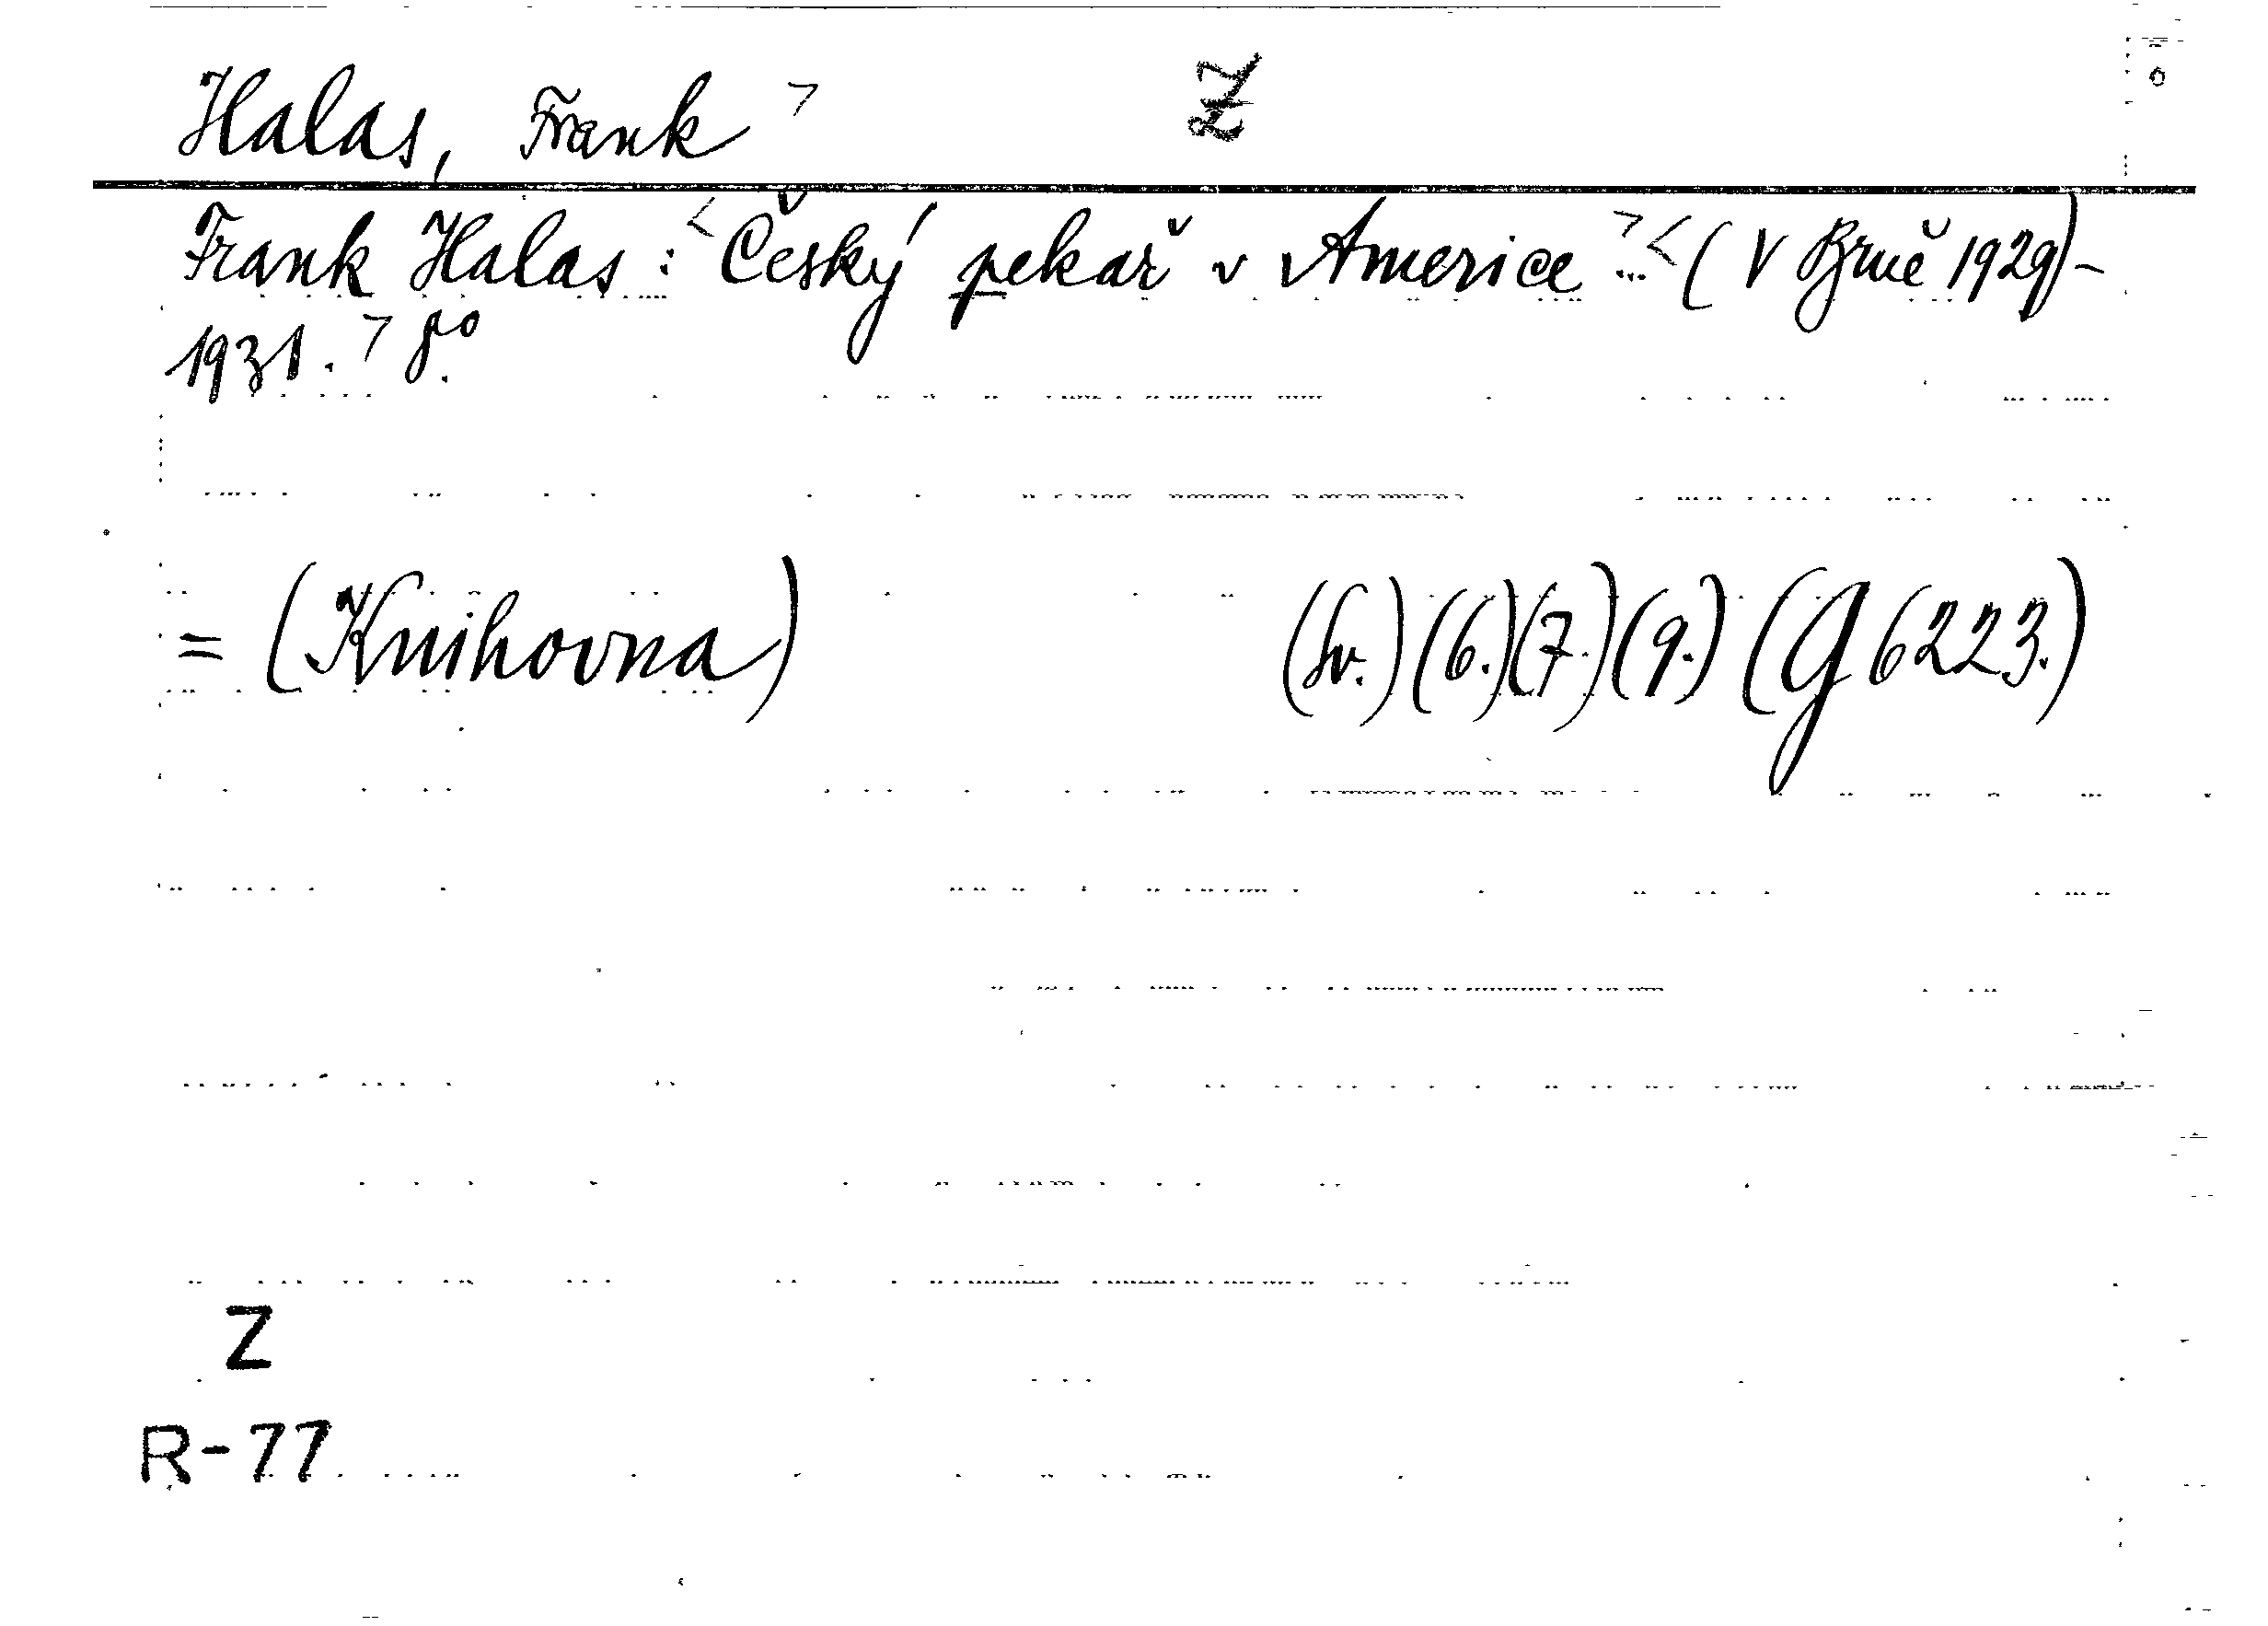 Halas, Frank > Z
Frank Halas : <Český pekař v Americe ...> <(V Brně 1929)-
1931.> 8°.
= (Knihovna) (Sv.) (6.) (7.) (9.) (G 6223.)
Z
R-77